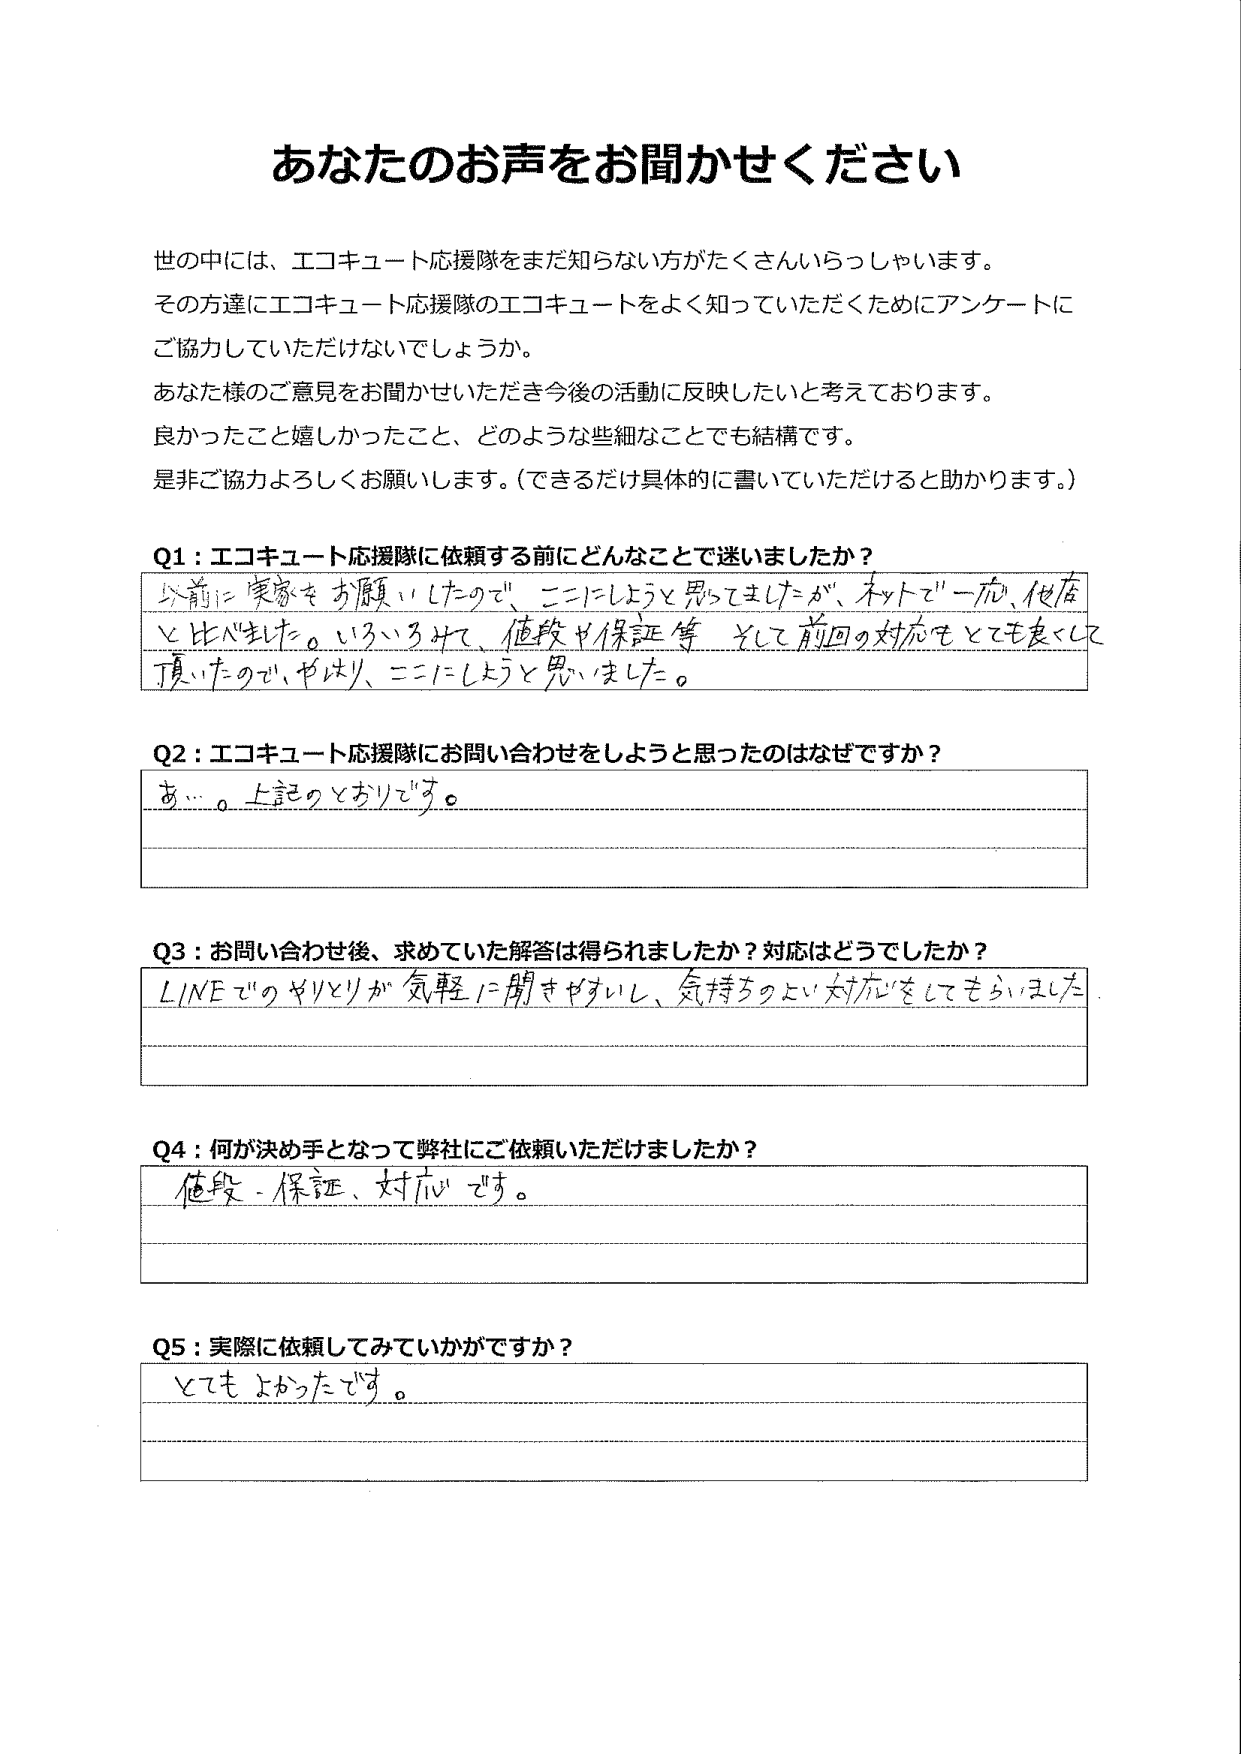 あなたのお声をお聞かせください
世の中には、エコキュート応援隊をまだ知らない方がたくさんいらっしゃいます。
その方達にエコキュート応援隊のエコキュートをよく知っていただくためにアンケートに
ご協力していただけないでしょうか。
あなた様のご意見をお聞かせいただき今後の活動に反映したいと考えております。
良かったこと嬉しかったこと、どのような些細なことでも結構です。
是非ご協力よろしくお願いします。(できるだけ具体的に書いていただけると助かります。)
Q1：エコキュート応援隊に依頼する前にどんなことで迷いましたか？
以前に実家をお願いしたので、ここにしようと思ってましたが、ネットで一応、他店
と比べました。いろいろみて、値段や保証等 そして前回の対応もとても良くして
頂いたので、やはり、ここにしようと思いました。
Q2：エコキュート応援隊にお問い合わせをしようと思ったのはなぜですか？
あ…。上記のとおりです。
Q3：お問い合わせ後、求めていた解答は得られましたか？対応はどうでしたか？
LINEでのやりとりが気軽に聞きやすいし、気持ちのよい対応をしてもらいました
Q4：何が決め手となって弊社にご依頼いただけましたか？
値段・保証、対応です。
Q5：実際に依頼してみていかがですか？
とてもよかったです。